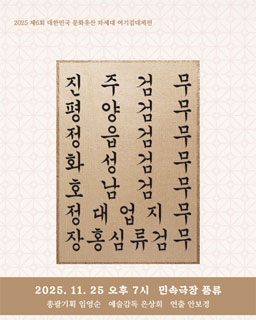 2025 제6회 대한민국 문화유산 차세대 여기검대제전
진 주 검 무
평 양 검 무
정 읍 검 무
화 성 검 무
호 남 검 무
정 대 업 지 무
장 홍 심 류 검 무
2025. 11. 25 오후 7시 민속극장 풍류
총괄기획 임영순 예술감독 은상희 연출 안보경